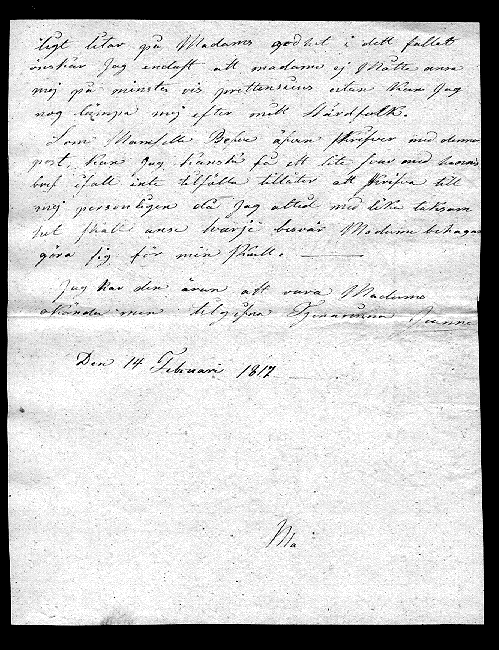 ligt litar på Madams godhet i dett fallet
önskar Jag endast att madame ej Måtte anse
mej på minsta vis prettensieus utan kan Jag
nog lämpa mej efter mitt Värdfolk.
Som Mamselle äfven skrifver med denna
post, kan Jag kanske få ett lite svar med hännes
bref ifall inte tillfälle tillåter att skrifva till
mej personligen då Jag altid med lika taksam
het skall anse hvarje besvär Madame behagar
göra sig för min skull.
Jag har den äran att vara Madame
min tilgifna Tjenarinna
Den 14 Februari 1817
Ma